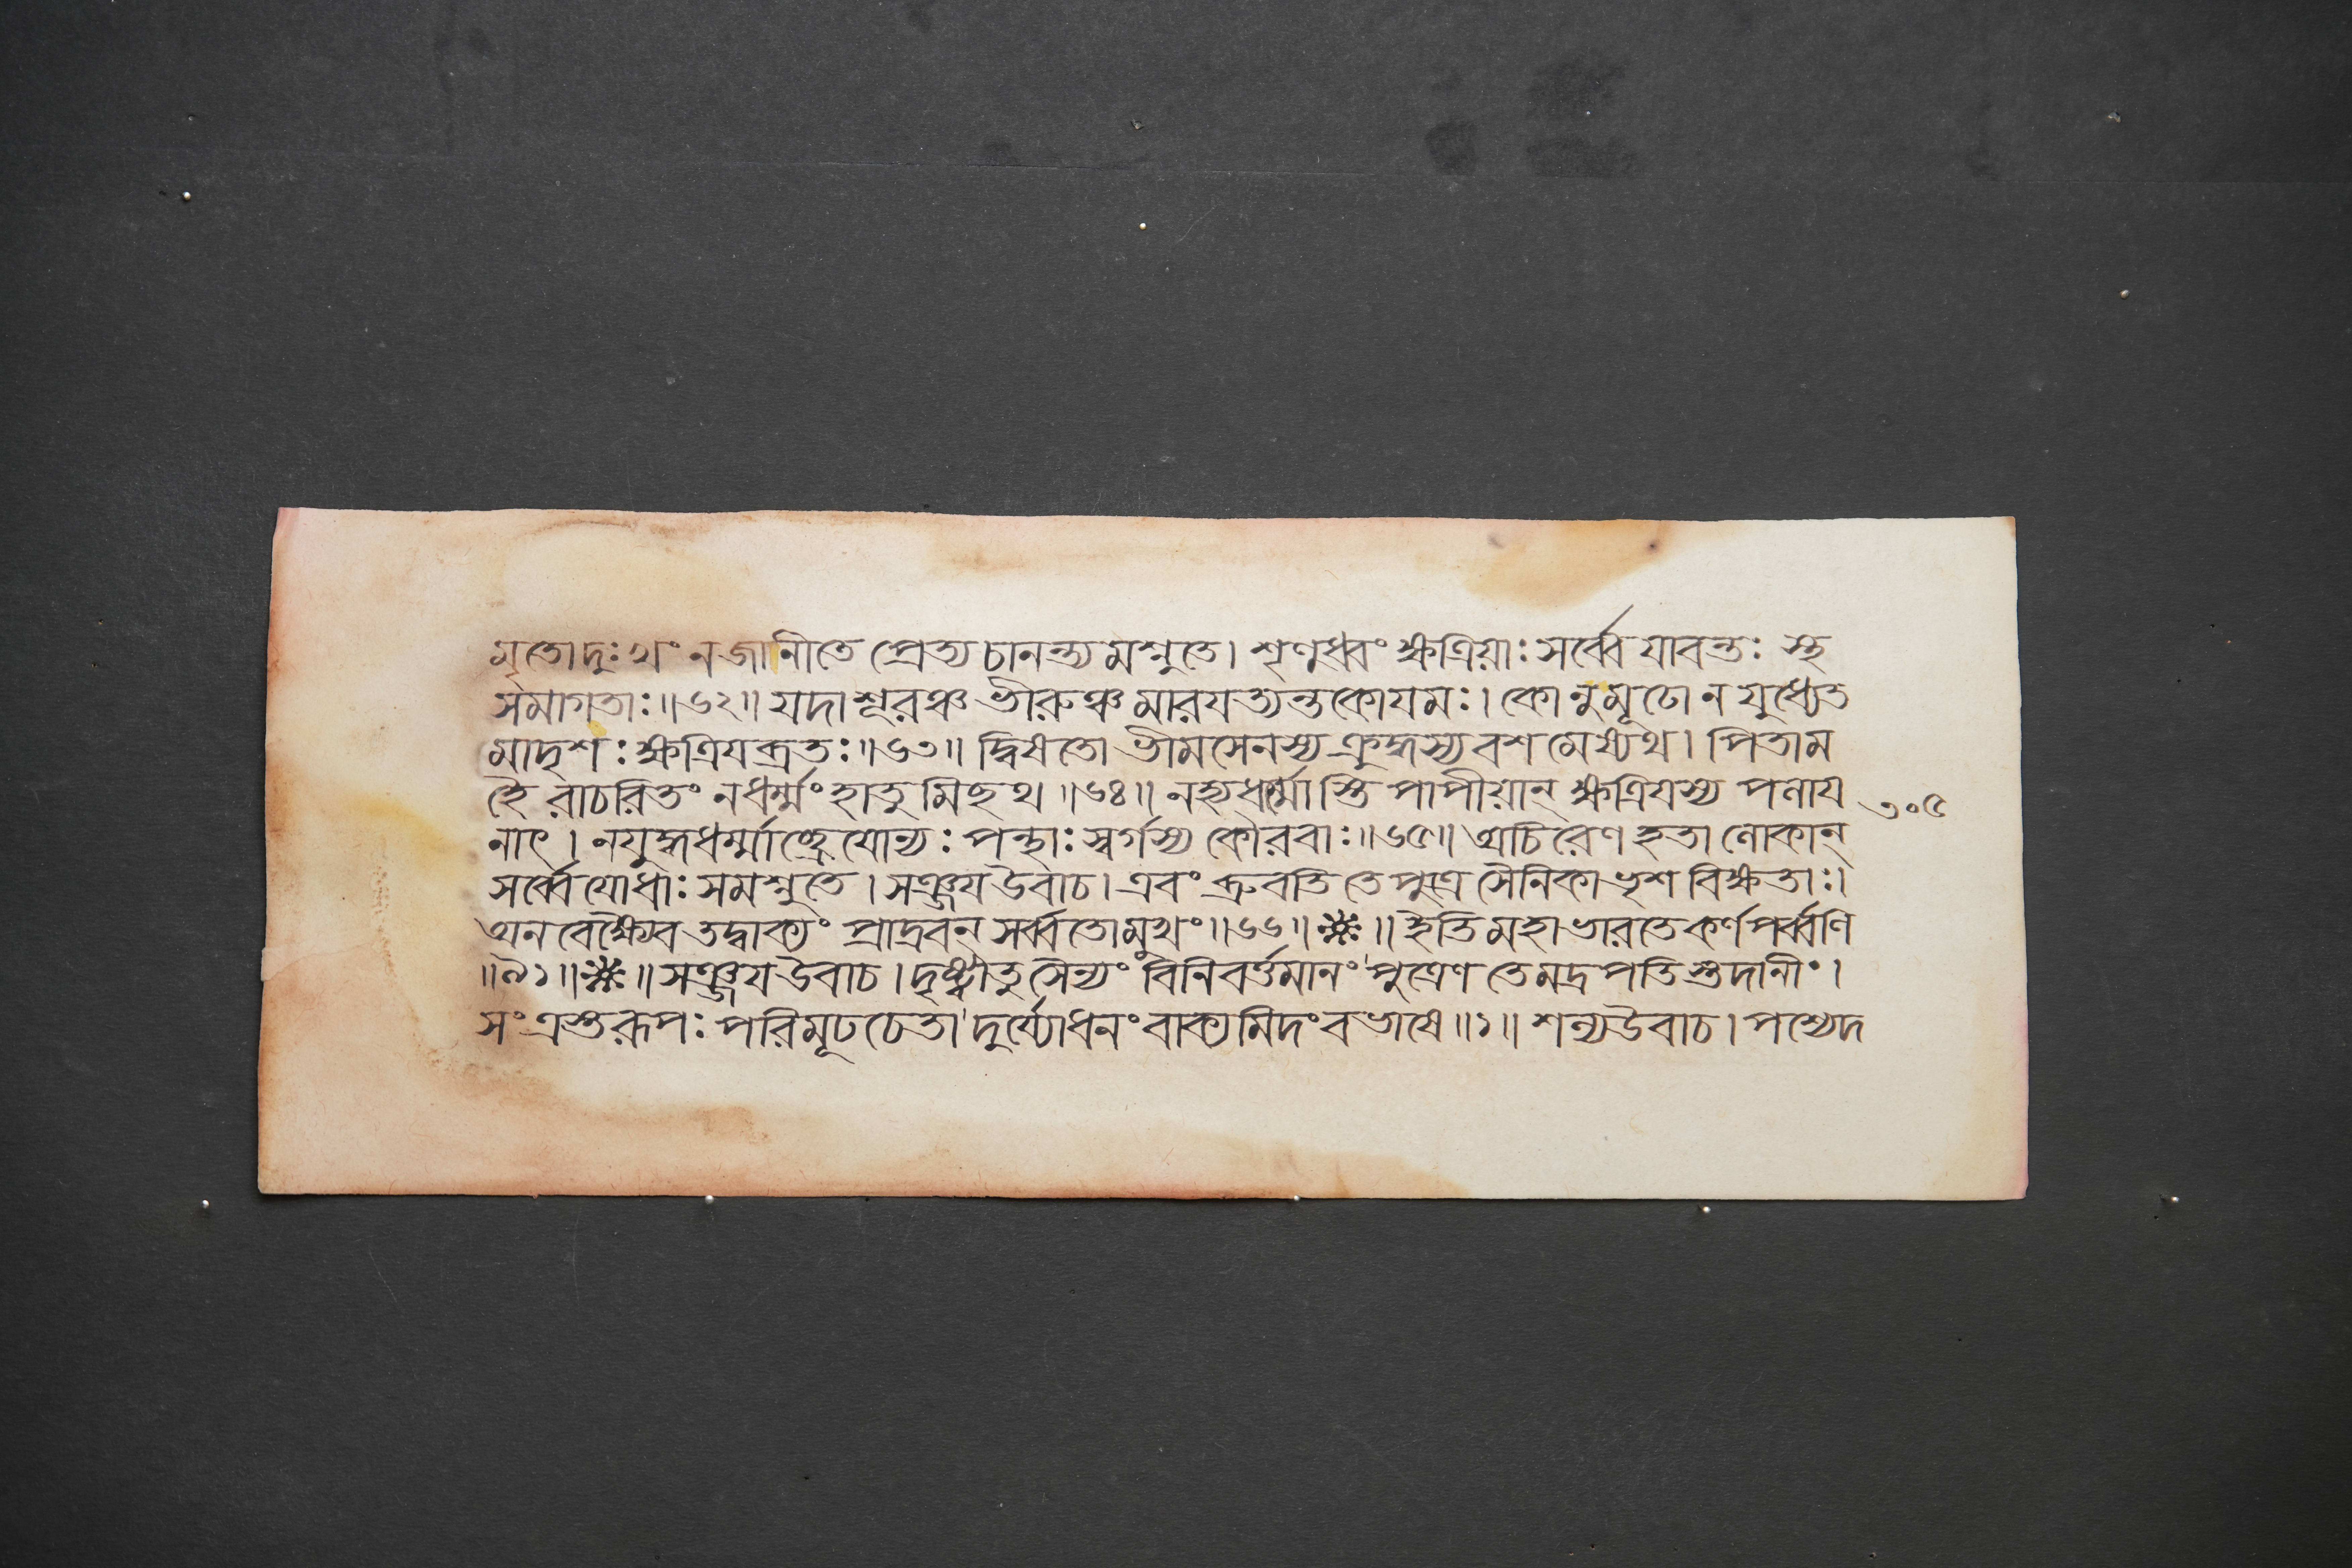 মৃতো দুঃখং ন জানীতে প্রেত্য চানন্ত্যমশ্নুতে। শৃণুধ্বং ক্ষত্রিয়াঃ সর্ব্বে যাবন্তঃ স্থ
সমাগতাঃ॥৬২॥ যদা শূরঞ্চ ভীরুঞ্চ মারযত্যন্তকো যমঃ। কো নু মূঢো ন যুধ্যেত
মাদৃশঃ ক্ষত্রিযব্রতঃ॥৬৩॥ দ্বিষতো ভীমসেনস্য ক্রুদ্ধস্য বশমেষ্যথ। পিতাম
হৈরাচরিতং ন ধর্ম্মং হাতুমিছথ॥৬৪॥ নহ্যধর্ম্মোস্তি পাপীয়ান্ ক্ষত্রিযস্য পলায
নাৎ। ন যুদ্ধধর্ম্মাচ্ছ্রেযোন্যঃ পন্থাঃ স্বর্গস্য কৌরবাঃ॥৬৫॥ অচিরেণ হতা লোকান্
সর্ব্বে যোধাঃ সমশ্নুতে। সঞ্জয উবাচ। এবং ব্রুবতি তে পুত্রে সৈনিকা ভৃশবিক্ষতাঃ।
অনবেক্ষ্যৈব তদ্বাক্যং প্রাদ্রবন্ সর্ব্বতোমুখং॥৬৬॥ ॥ ইতি মহাভারতে কর্ণপর্ব্বণি
॥৯১॥ ॥ সঞ্জয উবাচ। দৃষ্ট্বা তু সৈন্যং বিনিবর্ত্তমানং পুত্রেণ তে মদ্রপতিস্তদানীং।
সংত্রস্তরূপঃ পরিমূঢচেতা দুর্য্যোধনং বাক্যমিদং বভাষে॥১॥ শল্য উবাচ। পশ্যেদ
৩০৫